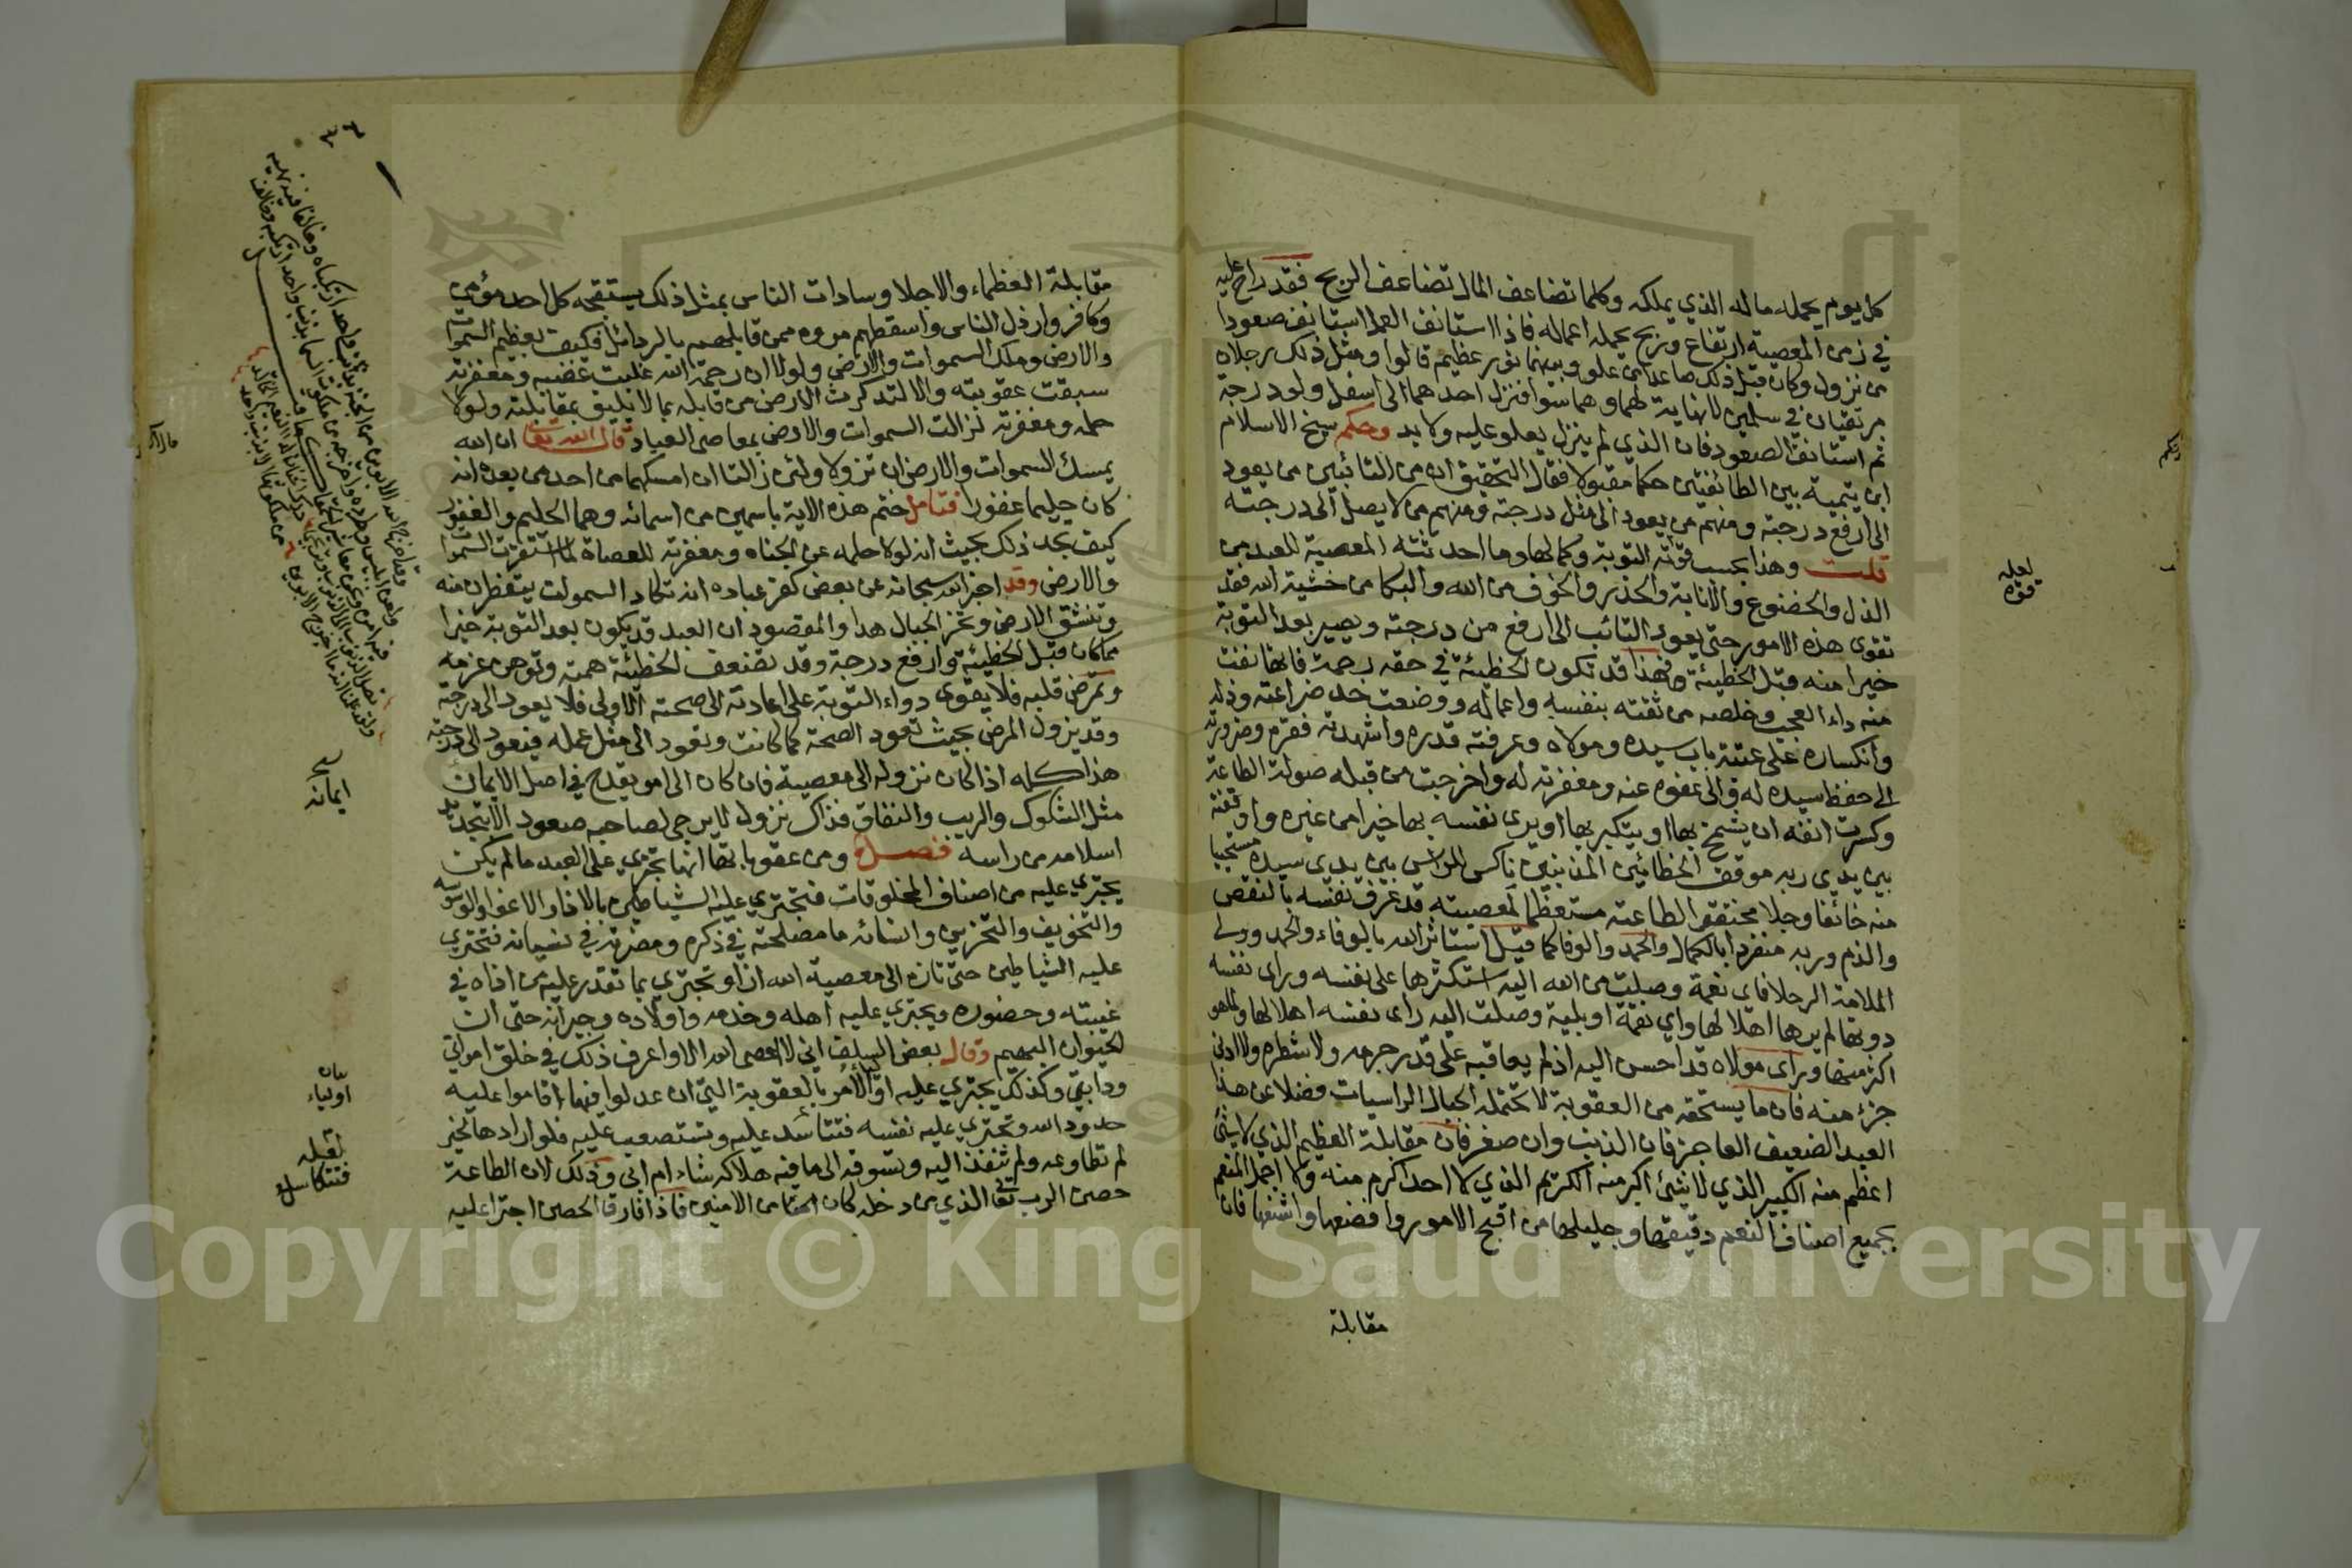 كل يوم يحمله ماله الذي يملكه وكلما تضاعف المال تضاعف الربح فقد راح عليه
في زمن المعصية ارتفاع وربح بحمله اعماله فاذا استانف العمل استانف صعودا
من نزول وكان قبل ذلك صاعدا من علو وبينهما بون عظيم قالوا ومثل ذلك رجلان
مرتقيان في سلمين لا نهاية لهما وهما سوا فنزل احدهما الى اسفل ولو درجة
ثم استانف الصعود فان الذي لم ينزل يعلو عليه ولا بد وحكم شيخ الاسلام
ابن تيمية بين الطائفتين حكما مقبولا فقال التحقيق ان من التائبين من يعود
الى ارفع درجته ومنهم من يعود الى مثل درجته ومنهم من لا يصل الى درجته
قلت وهذا بحسب قوة التوبة وكمالها وما احدثته المعصية للعبد من
الذل والخضوع والانابة والحذر والخوف من الله والبكا من خشية الله فقد
تقوى هذه الامور حتى يعود التائب الى ارفع من درجته ويصير بعد التوبة
خيرا منه قبل الخطيئة فهذا قد تكون الخطيئة في حقه رحمة فانها نفت
منه داء العجب وخلصه من ثقته بنفسه واعماله ووضعت خد ضراعته وذله
وانكساره على عتبة باب سيده ومولاه وعرفته قدره واشهدته فقره وضرورته
الى حفظ سيده له والى عفوه عنه ومغفرته له واخرجت من قبله صولة الطاعة
وكسرت انفه ان يشمخ بها او يتكبر بها او يرى نفسه بها خيرا من غيره واوقفته
بين يدي ربه موقف الخطائين المذنبين ناكس الراس بين يدي سيده مستحيا
منه خائفا وجلا محتقرا لطاعته مستعظما لمعصيته قد عرف نفسه بالنقص
والذم وربه منفرد بالكمال والحمد والوفا كما قيل استاثر الله بالوفاء والحمد وولى
الملامة الرجلا فاي نعمة وصلت من الله اليه استكثرها على نفسه وراى نفسه
دونها لم يرها اهلا لها واي نقمة او بلية وصلت اليه راى نفسه اهلا لها ولما هو
اكثر منها وراى مولاه قد احسن اليه اذ لم يعاقبه على قدر جرمه ولا شطره ولا ادنى
جزء منه فان ما يستحقه من العقوبة لا تحتمله الجبال الراسيات فضلا عن هذا
العبد الضعيف العاجز فان الذنب وان صغر فان مقابلة العظيم الذي لا شئ
اعظم منه الكبير الذي لا شئ اكبر منه الكريم الذي لا احد اكرم منه ولا اجمل المنعم
بجميع اصناف النعم دقيقها وجليلها من اقبح الامور وافضعها واشنعها فان
مقابلة
لعله
قوة
مقابلة العظماء والاجلا وسادات الناس بمثل ذلك يستقبحه كل احد مؤمن
وكافر وارذل الناس واسقطهم مروه من قابلهم بالرذائل فكيف بعظيم السموات
والارض وملك السموات والارض ولولا ان رحمة الله غلبت غضبه ومغفرته
سبقت عقوبته والا لتدكدكت الارض من قابله بما لا يليق بمقابلته ولولا
حلمه ومغفرته لزالت السموات والارض بمعاصى العباد قال الله تعا ان الله
يمسك السموات والارض ان تزولا ولئن زالتا ان امسكهما من احد من بعده انه
كان حليما غفورا فتامل ختم هذه الاية باسمين من اسمائه وهما الحليم والغفور
كيف تجد ذلك بحيث انه لولا حلمه عن الجناه ومغفرته للعصاة لما استقرت السموات
والارض وقد اخبر الله سبحانه عن بعض كفر عباده انه تكاد السموات يتفطرن منه
وتنشق الارض وتخر الجبال هدا والمقصود ان العبد قد يكون بعد التوبة خيرا
مما كان قبل الخطيئة وارفع درجة وقد تضعف الخطيئة همته وتوهن عزمه
وتمرض قلبه فلا يقوى دواء التوبة على اعادته الى صحته الاولى فلا يعود الى درجته
وقد يزول المرض بحيث تعود الصحة كما كانت ويعود الى مثل عمله فيعود الى درجته
هذا كله اذا كان نزوله الى معصية فان كان الى امر يقدح في اصل الايمان
مثل الشكوك والريب والنفاق فذاك نزول لا يرجى لصاحبه صعود الا بتجديد
اسلامه من راسه فصل ومن عقوباتها انها تجري على العبد ما لم يكن
يجتري عليه من اصناف المخلوقات فتجتري عليه الشياطين بالاذا والاغوا والوسوسة
والتخويف والتحزين وانسائه ما مصلحته في ذكره ومضرته في نسيانه فتجتري
عليه الشياطين حتى تازه الى معصية الله ازا وتجتري بما تقدر عليه من اذاه في
غيبته وحضوره ويجتري عليه اهله وخدمه واولاده وجيرانه حتى ان
الحيوان البهيم وقال بعض السلف اني لا اعصى الله الا واعرف ذلك في خلق امراتي
ودابتي وكذلك يجتري عليه اولا الامر بالعقوبة التي ان عدلوا فيها اقاموا عليه
حدود الله وتجتري عليه نفسه فتتأسد عليه وتستصعب عليه فلو ارادها لخير
لم تطاوعه ولم تنفذ اليه وتسوقه الى ما فيه هلاكه شاء ام ابى وذلك لان الطاعة
حصن الرب تعا الذي من دخله كان من الامنين فاذا فارق الحصن اجترا عليه
ايمانه
اولياء
لعله
Copyright © King Saud University